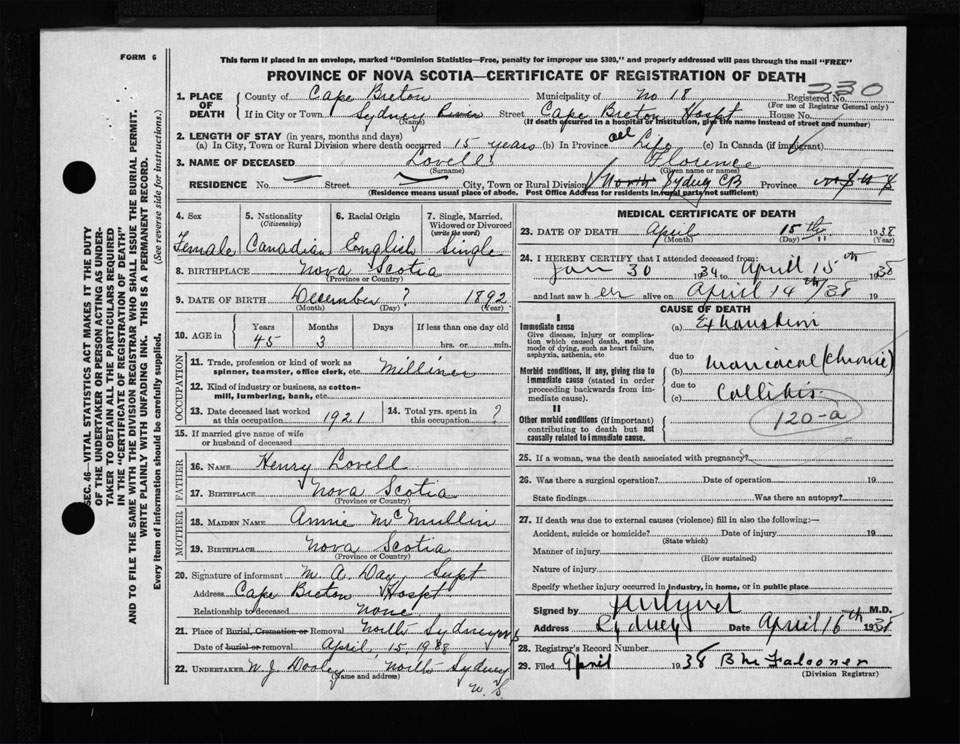 FORM 6
This form if placed in an envelope, marked "Dominion Statistics—Free, penalty for improper use $300," and properly addressed will pass through the mail "FREE"
PROVINCE OF NOVA SCOTIA—CERTIFICATE OF REGISTRATION OF DEATH
SEC. 46—VITAL STATISTICS ACT MAKES IT THE DUTY
OF THE UNDERTAKER OR PERSON ACTING AS UNDER-
TAKER TO OBTAIN ALL THE PARTICULARS REQUIRED
IN THE "CERTIFICATE OF REGISTRATION OF DEATH"
AND TO FILE THE SAME WITH THE DIVISION REGISTRAR WHO SHALL ISSUE THE BURIAL PERMIT.
WRITE PLAINLY WITH UNFADING INK. THIS IS A PERMANENT RECORD.
Every item of information should be carefully supplied. (See reverse side for instructions.)
1. PLACE OF DEATH
County of Cape Breton Municipality of No 18 Registered No. 230
(For use of Registrar General only)
If in City or Town Sydney River Street Cape Breton Hospt House No.
(Name) (If death occurred in a hospital or institution, give the name instead of street and number)
2. LENGTH OF STAY (in years, months and days)
(a) In City, Town or Rural Division where death occurred 15 years (b) In Province all Life (c) In Canada (if immigrant)
3. NAME OF DECEASED Lovell Florence
(Surname) (Given name or names)
RESIDENCE No. Street City, Town or Rural Division North Sydney CB Province
(Residence means usual place of abode. Post Office Address for residents in rural party not sufficient)
4. Sex
Female
5. Nationality
(Citizenship)
Canadian
6. Racial Origin
English
7. Single, Married,
Widowed or Divorced
(write the word)
Single
8. BIRTHPLACE Nova Scotia
(Province or Country)
9. DATE OF BIRTH December ? 1892
(Month) (Day) (Year)
10. AGE in
Years
45
Months
3
Days
If less than one day old
hrs. or min.
OCCUPATION
11. Trade, profession or kind of work as
spinner, teamster, office clerk, etc. Milliner
12. Kind of industry or business, as cotton-
mill, lumbering, bank, etc.
13. Date deceased last worked
at this occupation 1921
14. Total yrs. spent in
this occupation ?
15. If married give name of wife
or husband of deceased
FATHER
16. NAME Henry Lovell
17. BIRTHPLACE Nova Scotia
(Province or Country)
MOTHER
18. MAIDEN NAME Annie McMullin
19. BIRTHPLACE Nova Scotia
(Province or Country)
20. Signature of informant M. A. Day, Supt
Address Cape Breton Hospt
Relationship to deceased none
21. Place of Burial, Cremation or Removal North Sydney NS
Date of burial or removal April 15 1938
22. UNDERTAKER W. J. Dooley North Sydney
(Name and address)
N. S.
MEDICAL CERTIFICATE OF DEATH
23. DATE OF DEATH April 15th 1938
(Month) (Day) (Year)
24. I HEREBY CERTIFY that I attended deceased from:
Jan 30 1934 to April 15th 1938
and last saw her alive on April 14th/38 19
CAUSE OF DEATH
I
Immediate cause
Give disease, injury or complica-
tion which caused death, not the
mode of dying, such as heart failure,
asphyxia, asthenia, etc
(a) Exhaustion
due to
Morbid conditions, if any, giving rise to
immediate cause (stated in order
proceeding backwards from im-
mediate cause).
(b) Maniacal (chronic)
due to
(c) Collitis
120-a
II
Other morbid conditions (if important)
contributing to death but not
causally related to immediate cause.
25. If a woman, was the death associated with pregnancy?
26. Was there a surgical operation? Date of operation 19
State findings Was there an autopsy?
27. If death was due to external causes (violence) fill in also the following:—
Accident, suicide or homicide? Date of injury 19
(State which)
Manner of injury
(How sustained)
Nature of injury
Specify whether injury occurred in industry, in home, or in public place
Signed by M.D.
Address Sydney Date April 16th 1938
28. Registrar's Record Number
29. Filed April 1938 B Mc Falconer
(Division Registrar)